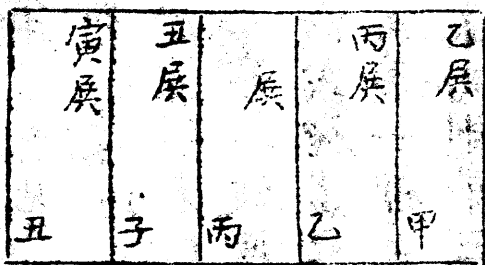 乙展
甲
丙展
乙
展
丙
丑展
子
寅展
丑